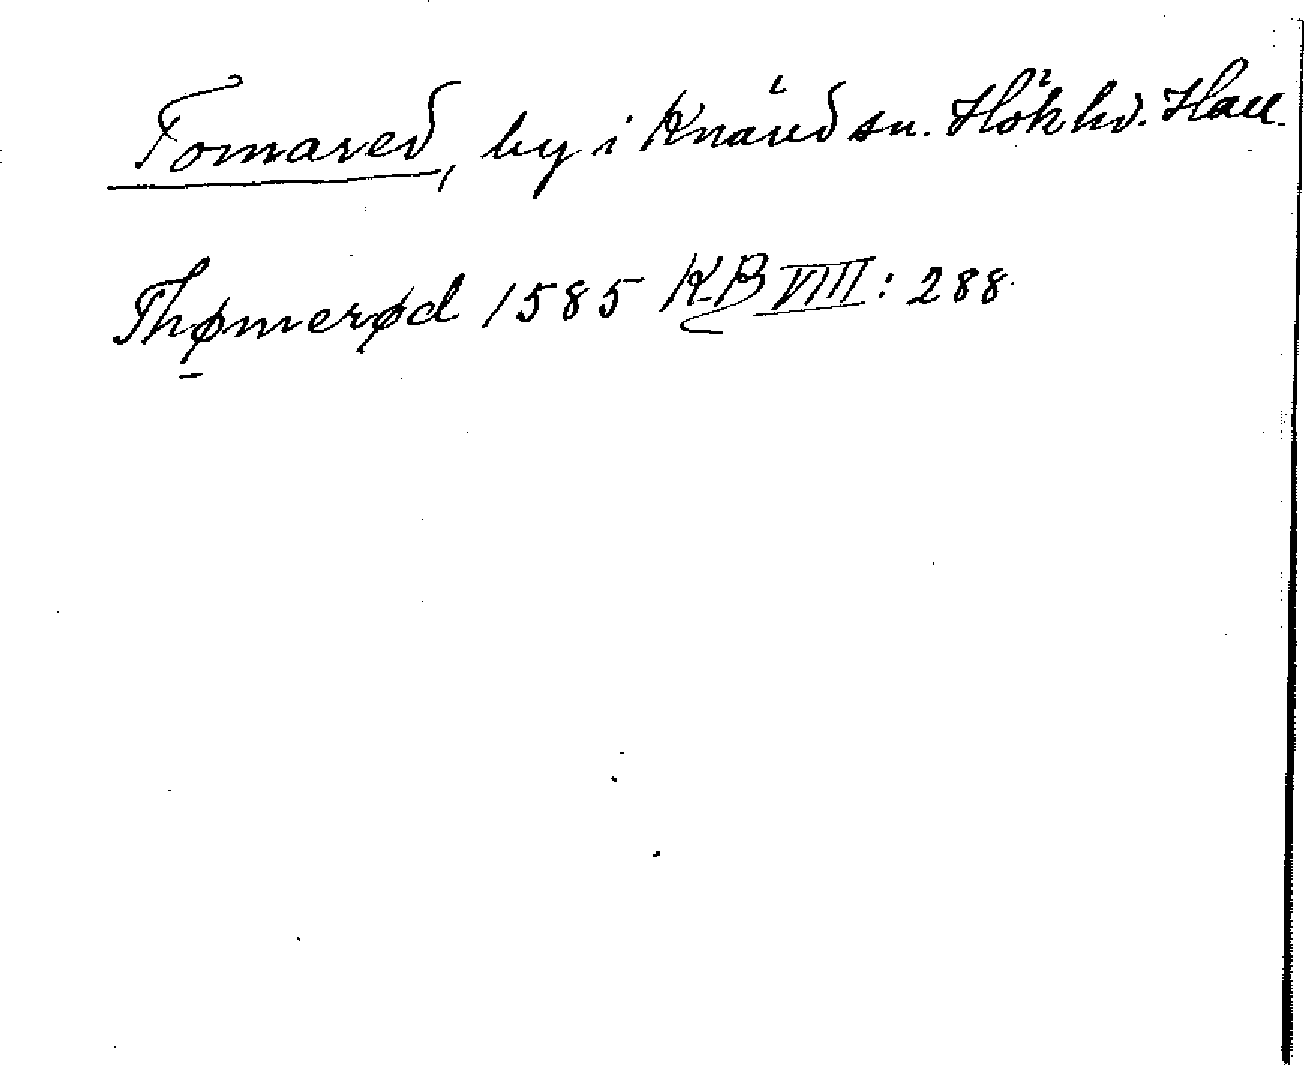 Tomared, by i Knäred sn. Hök hd. Hall.
Thømerød 1585 KB VIII: 288.